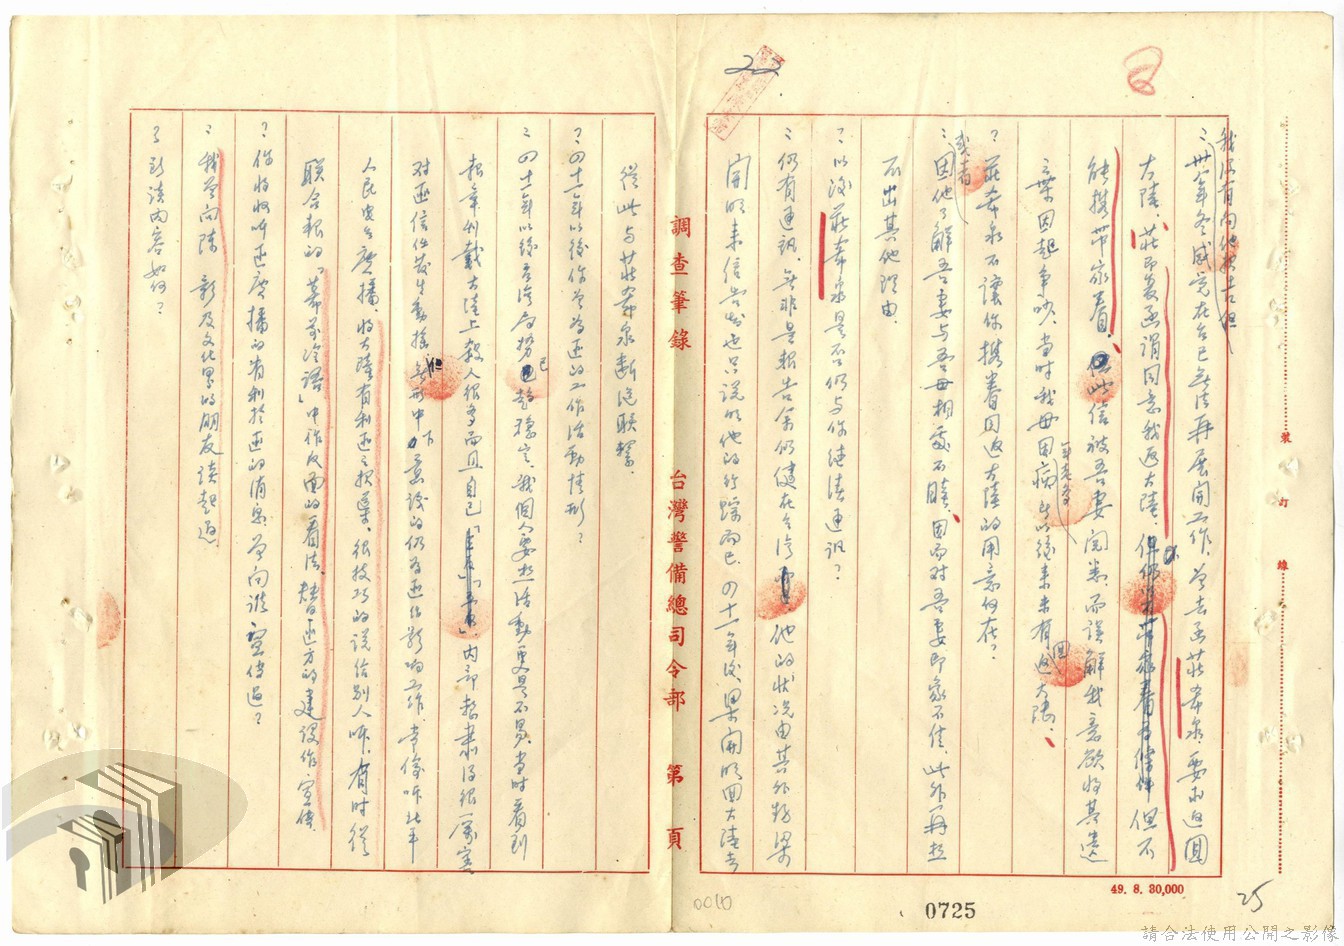 我沒有向他報告但
：卅八年冬感覺在台已無法再展開工作，曾去函莊希泉，要求返回
大陸，莊即覆函謂同意我返大陸，但不
能攜帶家眷，此信被吾妻閱悉，而誤解我意欲將其遺
棄因起爭吵，當時我母因病所以後來未有返回大陸。
？莊希泉不讓你攜眷同返大陸的用意何在？
：或者因他了解吾妻與吾母相處不睦，因而對吾妻印象不佳，此外再想
不出其他理由。
？以後莊希泉是否仍與你繼續通訊？
：仍有通訊，無非是報告余仍健在台灣，他的狀況由其外甥梁
開明來信告知也只說明他的行踪而已，四十一年後，梁開明回大陸去
從此与莊希泉斷絕聯繫。
？四十一年以後你曾為匪的工作活動情形？
：四十一年以後台灣局勢已趨穩定，我個人要想活動更是不易，當時看到
報章刊載大陸上殺人很多而且自己內部整肅得很厲害
對匪信仰發生動搖，無形中下意識的仍為匪作影响工作，常偷听北平
人民安全廣播，將大陸有利匪之報導，很技巧的說給別人听，有時從
联合報的「幕前冷語」中作反面的看法，替匪方的建設作宣傳。
？你將收听匪廣播的有利於匪的消息，曾向誰宣傳過？
：我曾向陳　新及文化界的朋友談起過
？所談內容如何？
調查筆錄　台灣警備總司令部　第　頁
裝訂線
49. 8. 30,000
0725
0010
25
22
請合法使用公開之影像